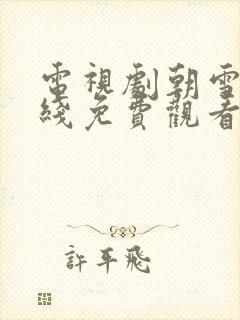 電視劇朝雪
綫免費觀看
許平飛